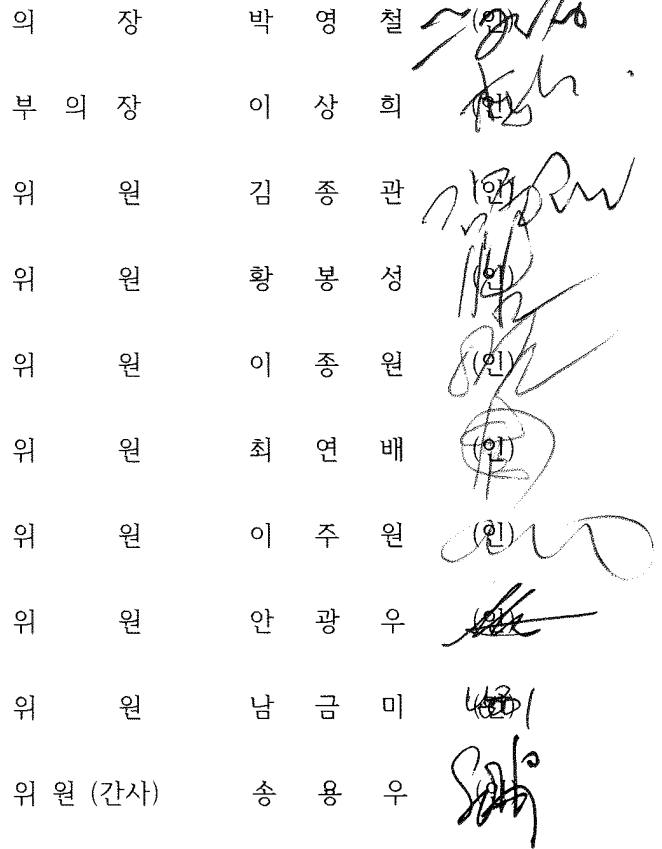 의 장 박 영 철 (인)
부 의 장 이 상 희 (인)
위 원 김 종 관 (인)
위 원 황 봉 성 (인)
위 원 이 종 원 (인)
위 원 최 연 배 (인)
위 원 이 주 원 (인)
위 원 안 광 우 (인)
위 원 남 금 미 (인)
위 원 (간사) 송 용 우 (인)